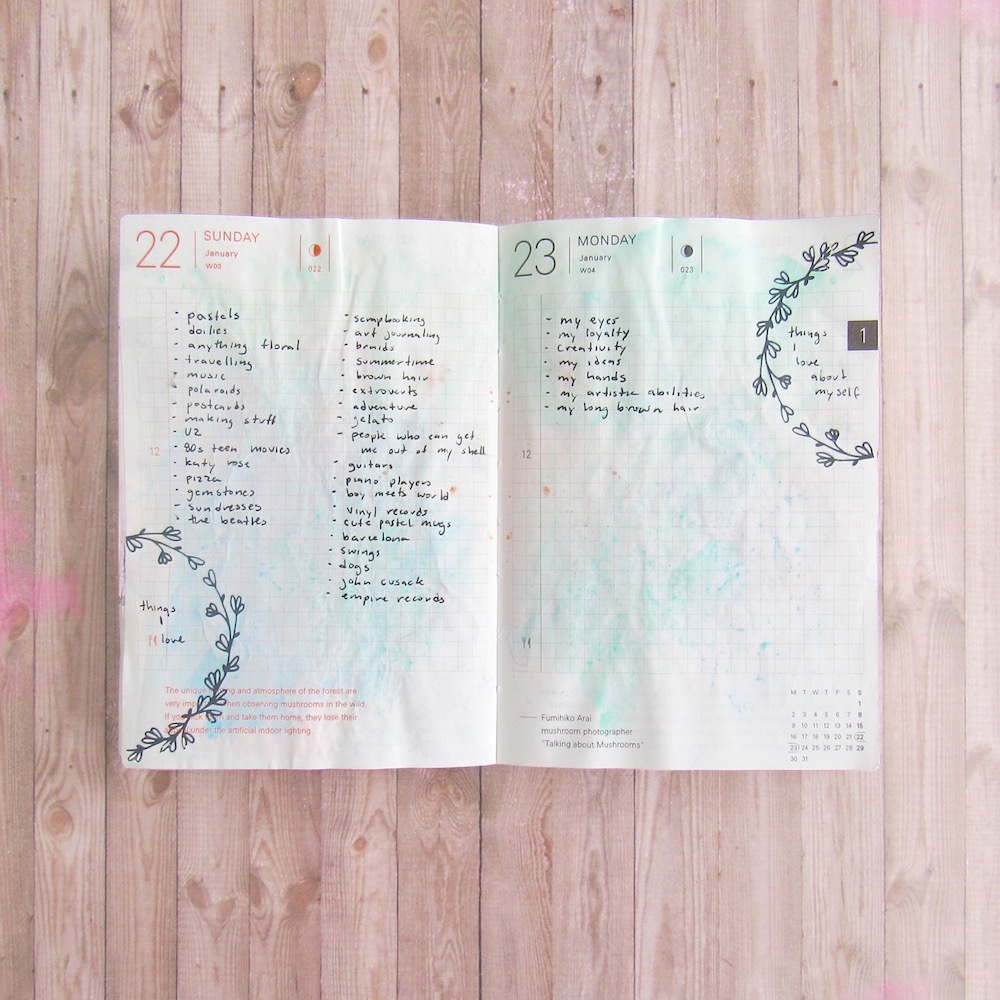 22
SUNDAY
January
W03
022
- pastels
- doilies
- anything floral
- travelling
- music
- polaroids
- postcards
- making stuff
- U2
- 80s teen movies
- katy rose
- pizza
- gemstones
- sundresses
- the beatles
- scrapbooking
- art journaling
- braids
- summertime
- brown hair
- extroverts
- adventure
- gelato
- people who can get
me out of my shell
- guitars
- piano players
- boy meets world
- vinyl records
- cute pastel mugs
- barcelona
- swings
- dogs
- john cusack
- empire records
12
things
I
love
The unique and atmosphere of the forest are
very when observing mushrooms in the wild.
If you and take them home, they lose their
under the artificial indoor lighting.
23
MONDAY
January
W04
023
- my eyes
- my loyalty
- creativity
- my ideas
- my hands
- my artistic abilities
- my long brown hair
things
I
love
about
myself
1
12
Fumihiko Arai
mushroom photographer
"Talking about Mushrooms"
M T W T F S S
1
2 3 4 5 6 7 8
9 10 11 12 13 14 15
16 17 18 19 20 21 22
23 24 25 26 27 28 29
30 31